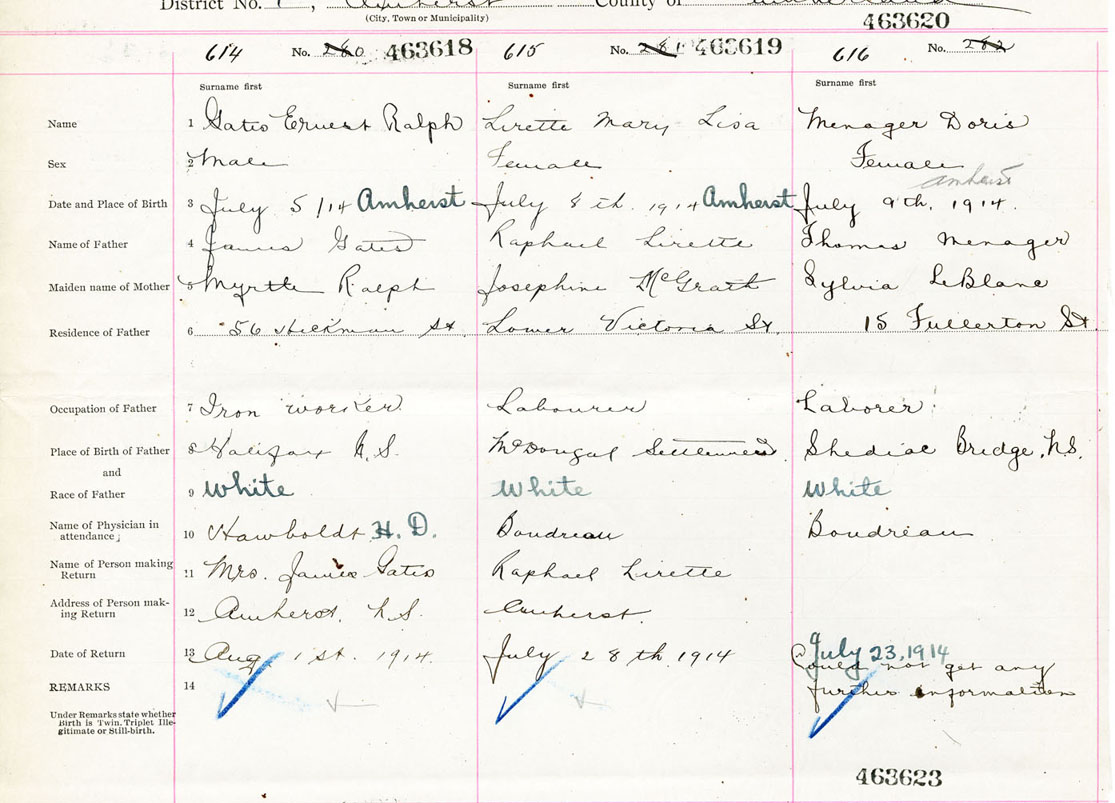 District No. 1, Amherst County of Cumberland
(City, Town or Municipality)
463620
614 No. 280 463618 615 No. 281 463619 616 No. 282
Surname first Surname first Surname first
Name 1 Gates Ernest Ralph Lirette Mary Lisa Menager Doris
Sex 2 Male Female Female
Amherst
Date and Place of Birth 3 July 5/14 Amherst July 8th. 1914 Amherst July 9th, 1914.
Name of Father 4 James Gates Raphael Lirette Thomas Menager
Maiden name of Mother 5 Myrtle Ralph Josephine McGrath Sylvia LeBlanc
Residence of Father 6 56 Hickman St. Lower Victoria St. 15 Fullerton St.
Occupation of Father 7 Iron worker Labourer Laborer
Place of Birth of Father 8 Halifax N.S. McDougal Settlement Shediac Bridge, N.S.
and
Race of Father 9 White White White
Name of Physician in
attendance; 10 Hawboldt H. D. Boudreau Boudreau
Name of Person making
Return 11 Mrs. James Gates Raphael Lirette
Address of Person mak-
ing Return 12 Amherst, N.S. Amherst.
Date of Return 13 Aug 1st. 1914. July 28th. 1914 July 23, 1914
Could not get any
REMARKS 14 further information
Under Remarks state whether
Birth is Twin, Triplet Ille-
gitimate or Still-birth.
463623